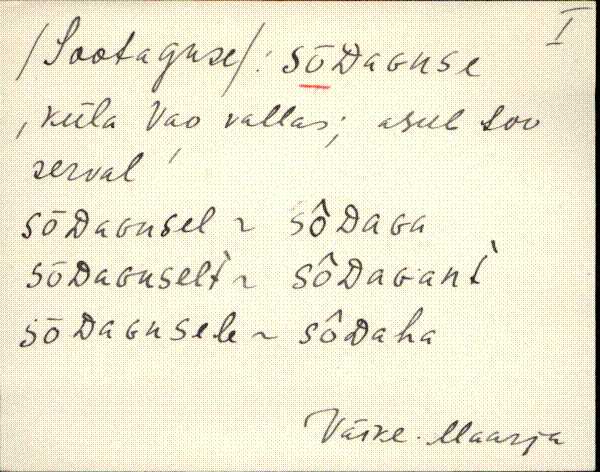 /Sootaguse/: sōDaGuse I
, küla Vao vallas; asub soo
serval '
sōDaGusel ~ sôDaGa
sōDaGuselt̀ ~ sôDaGant̀
sōDaGusele ~ sôDaha
Väike-Maarja